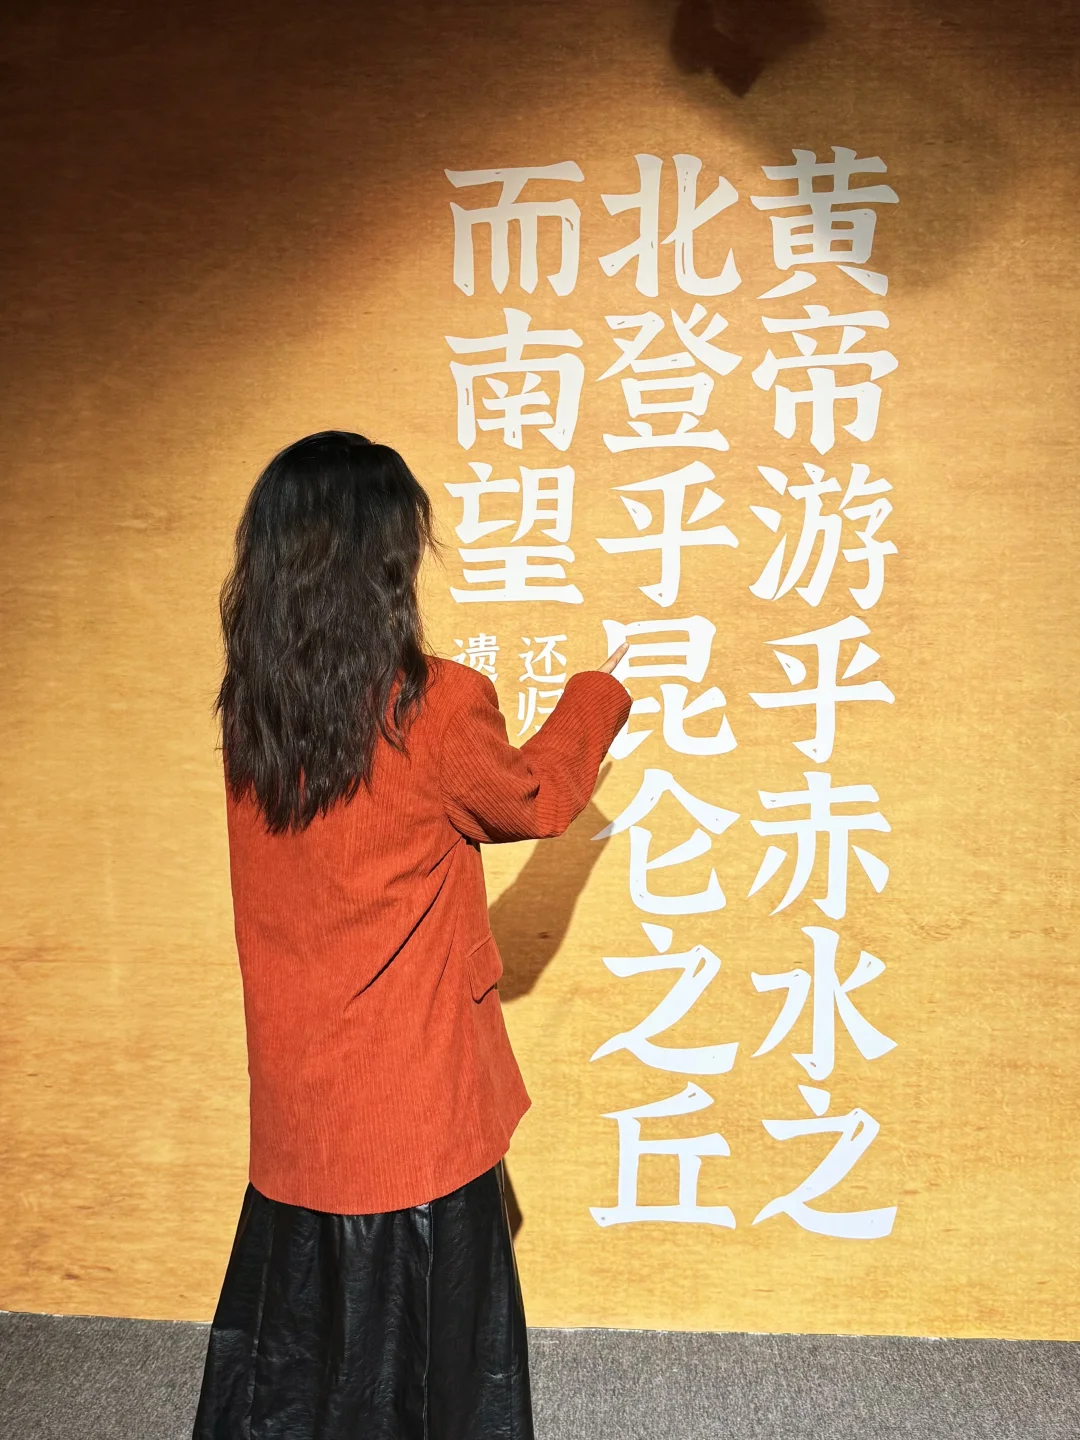 黄帝游乎赤水之
北登乎昆仑之丘
而南望
还归
遗